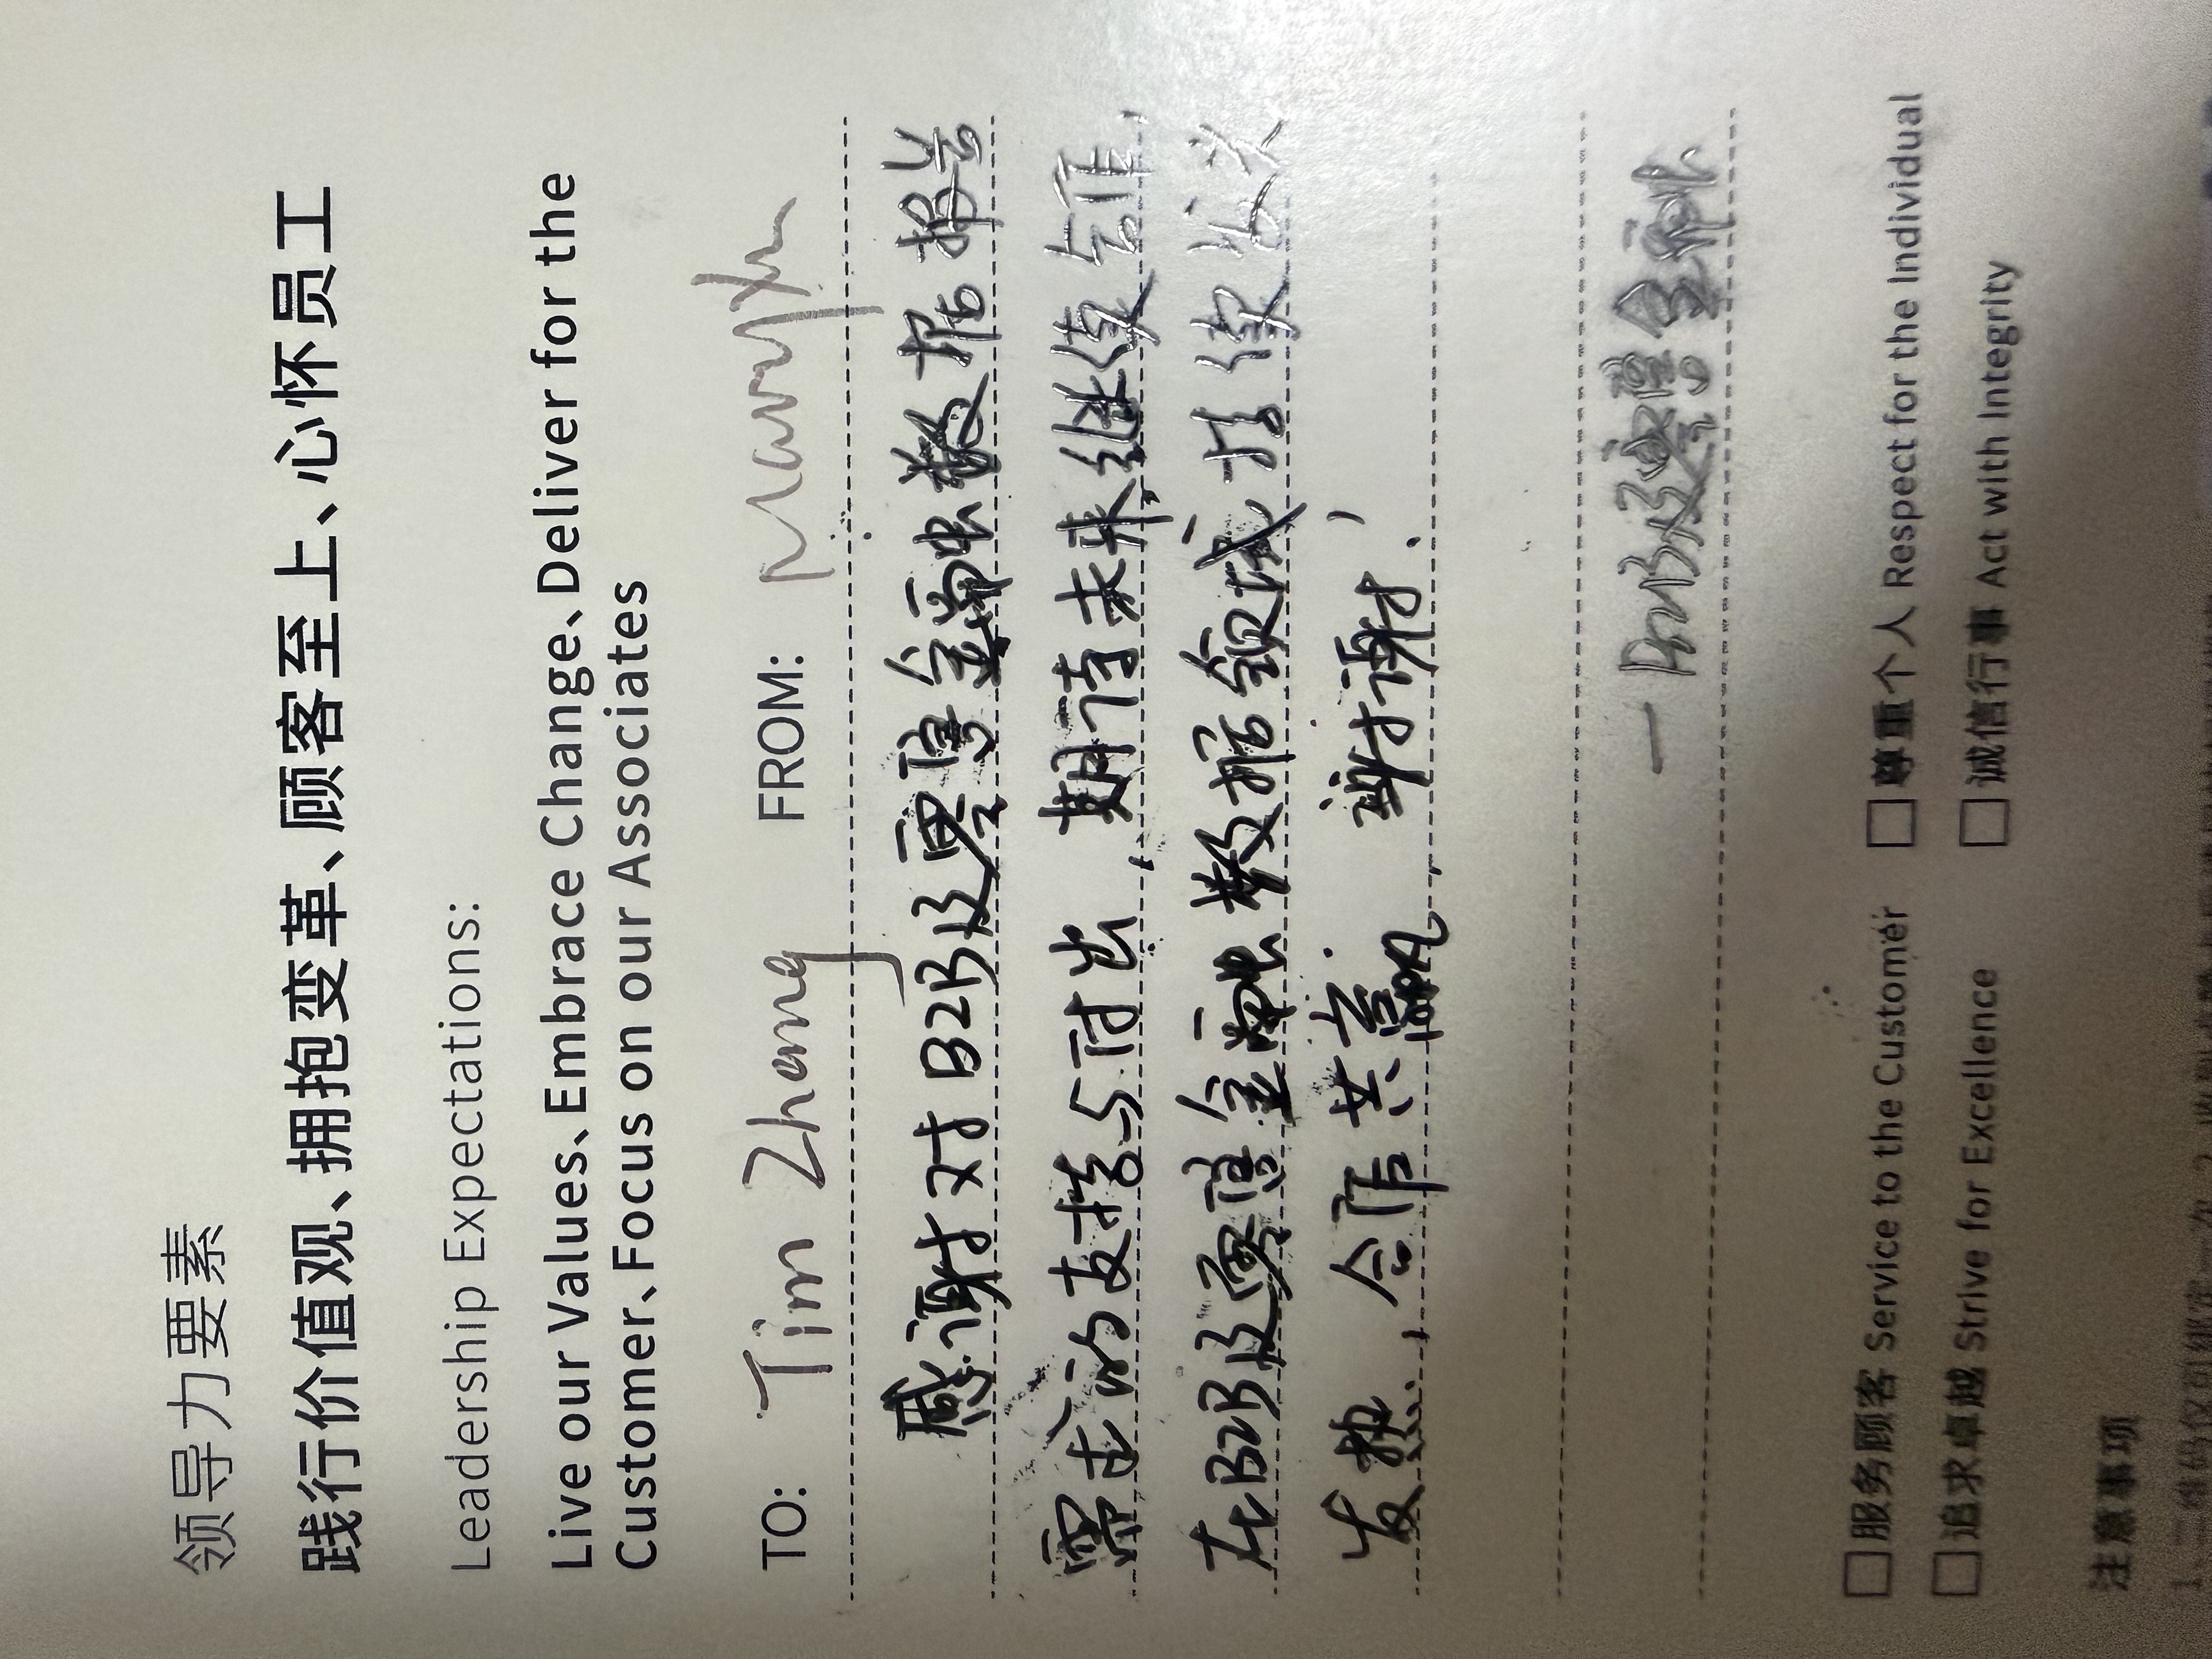 领导力要素
践行价值观、拥抱变革、顾客至上、心怀员工
Leadership Expectations:
Live our Values、Embrace Change、Deliver for the
Customer、Focus on our Associates
TO: Tim Zhang FROM:
感谢对B2B及零售金融数据报告
需求的支持与付出，期待未来继续合作，
在B2B及零售金融数据领域持续发光
发热，合作共赢。谢谢！
□服务顾客 Service to the Customer □尊重个人 Respect for the Individual
□追求卓越 Strive for Excellence □诚信行事 Act with Integrity
注意事项